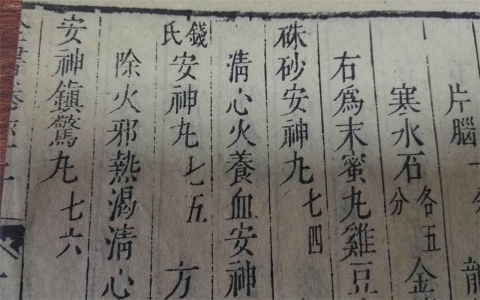 片腦
寒水石各五分 金
右爲末蜜丸雞豆
硃砂安神丸七四
清心火養血安神
錢氏安神丸七五 方
除火邪熱渴清心
安神鎮驚丸七六